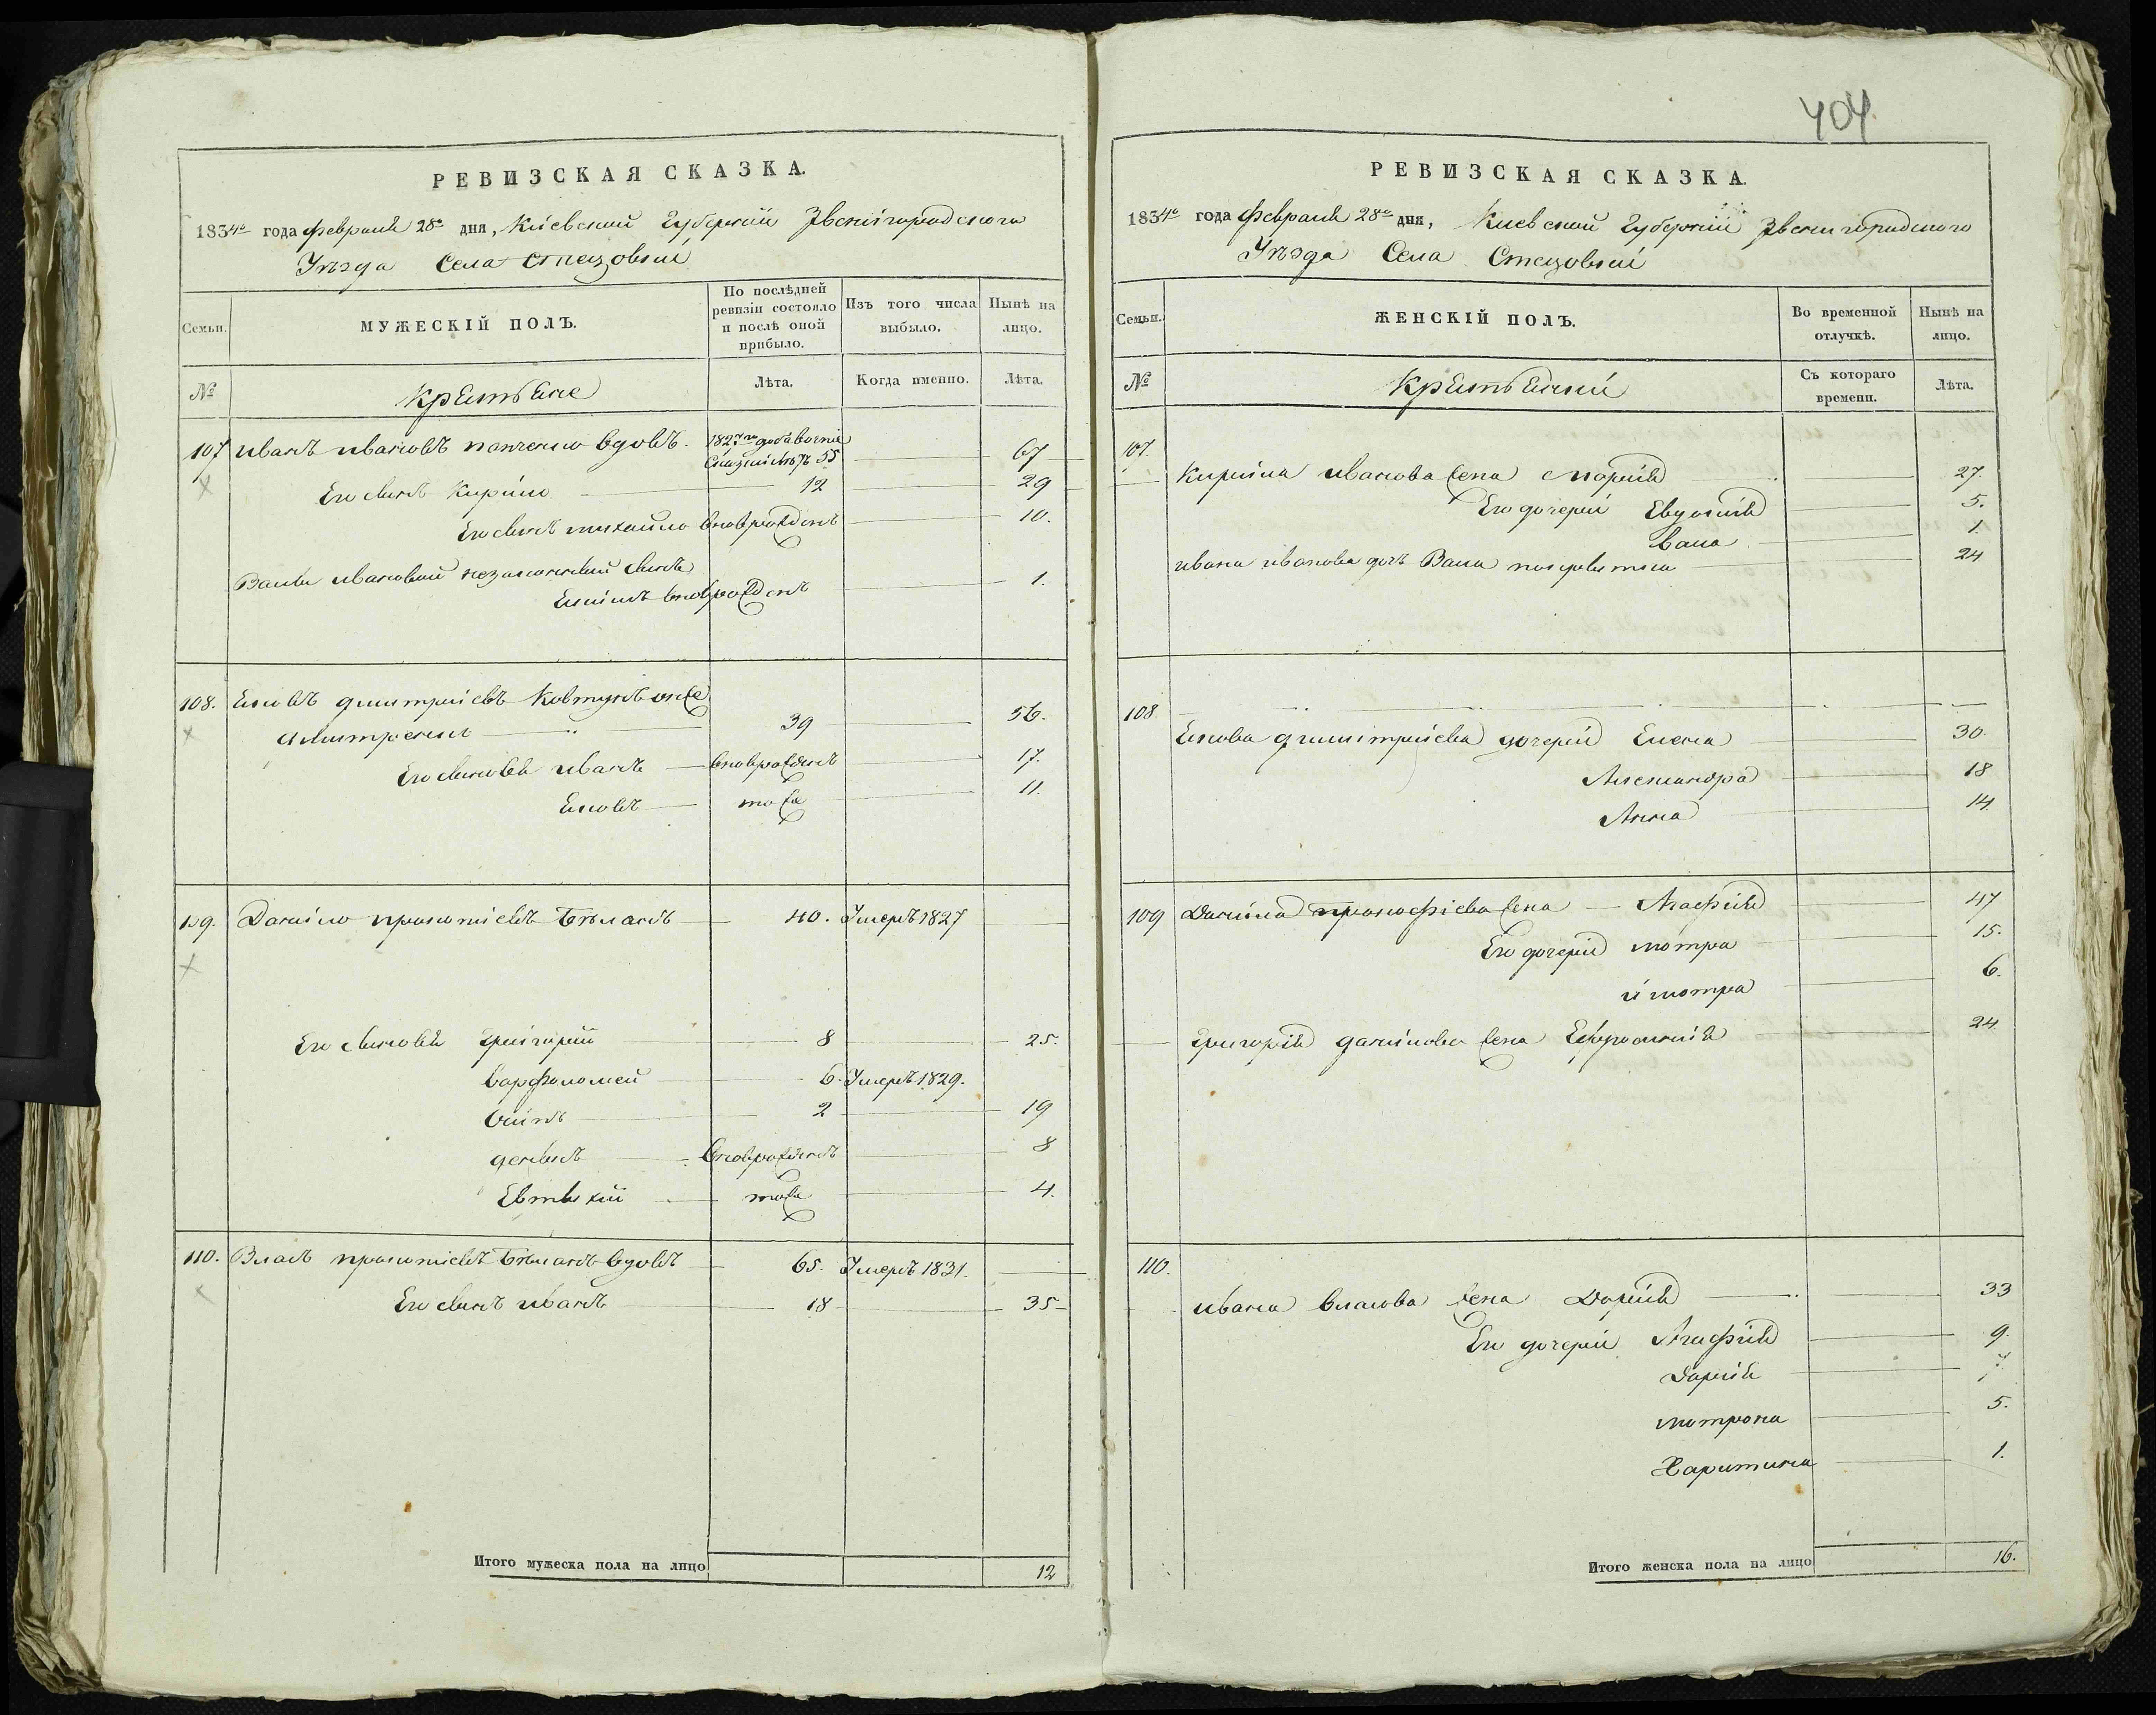 404
РЕВИЗСКАЯ СКАЗКА.
1834го года февраля 28го дня, Кіевской Губерніи Звенигородского
Уѣзда Села Стецовки
Семьи.
МУЖЕСКІЙ ПОЛЪ.
По послѣдней ревизіи состояло и послѣ оной прибыло.
Изъ того числа выбыло.
Нынѣ на лицо.
№
Крестьяне
Лѣта.
Когда именно.
Лѣта.
107 Иванъ Ивановъ вдовъ. 1827го года 55 67
Его сынъ Кирило 12 29
Его сынъ Михайло вновърожденъ 10.
Васы Ивановой незаконный сынъ
вновърожденъ 1.
108. Яковъ Дмитріевъ Ковтунъ онже
Дмитренко 39 56.
Его сыновья Иванъ вновърожденъ 17.
Яковъ тоже 11.
109. Данило Прокопіевъ Бѣланъ 40. Умеръ 1827
Его сыновья Григорій 8 25.
Варфоломей 6. Умеръ 1829.
Осипъ 2 19
Денысъ вновърожденъ 8
Евтыхій тоже 4.
110. Власъ Прокопіевъ Бѣланъ вдовъ 65. Умеръ 1831.
Его сынъ Иванъ 18 35
Итого мужеска пола на лицо 12
РЕВИЗСКАЯ СКАЗКА.
1834го года февраля 28го дня, Киевской Губерніи Звенигородского
Уѣзда Села Стецовки
Семьи.
ЖЕНСКІЙ ПОЛЪ.
Во временной отлучкѣ.
Нынѣ на лицо.
№
Крестьянки
Съ котораго времени.
Лѣта.
107.
Кирила Иванова жена Марія 27.
Его дочери Евдокія 5.
Васа 1.
Ивана Иванова дочь Васа 24
108
Якова Дмитріева дочери Елена 30.
Александра 18
Анна 14
109 Данила Прокофіева жена Агафія 47
Его дочери Мотра 15.
и Мотра 6.
Григорія Данилова жена Ефросинія 24
110.
Ивана Власова жена Дарія 33
Его дочери Агафія 9.
Дарія 7.
Мотрона 5.
Харитина 1.
Итого женска пола на лицо 16.